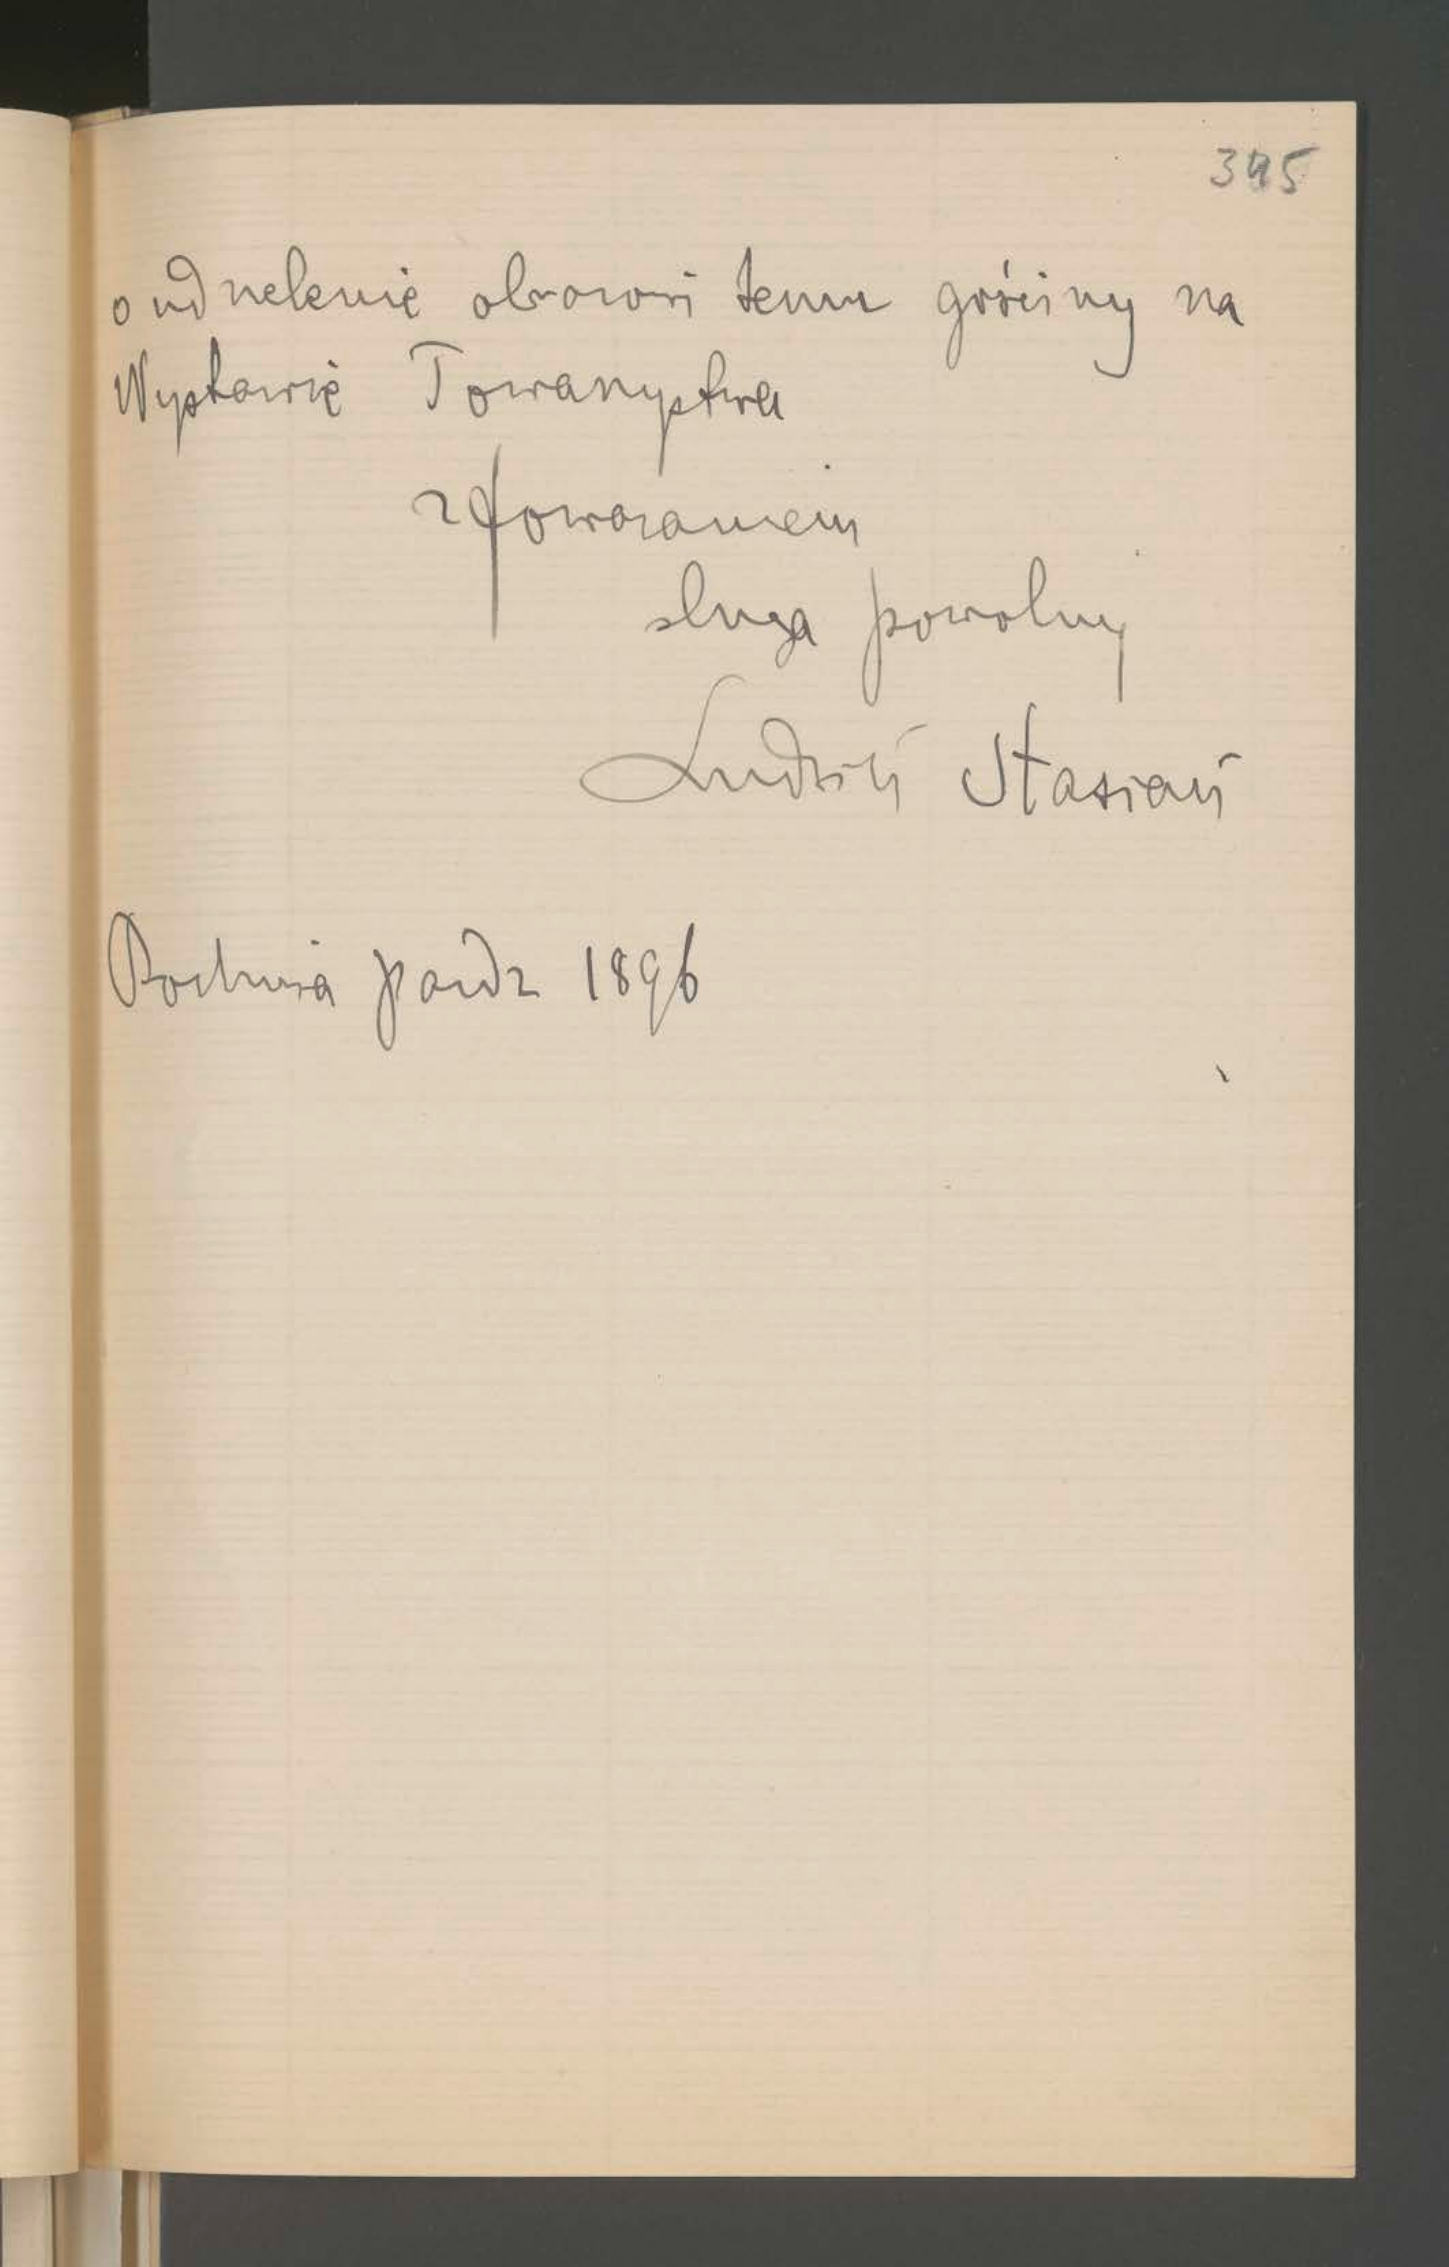 o udzielenie obrazowi temu gościny na
Wystawie Towarzystwa
z poważaniem
sługa powolny
Ludwik Stasiak
Bochnia paźdz 1896